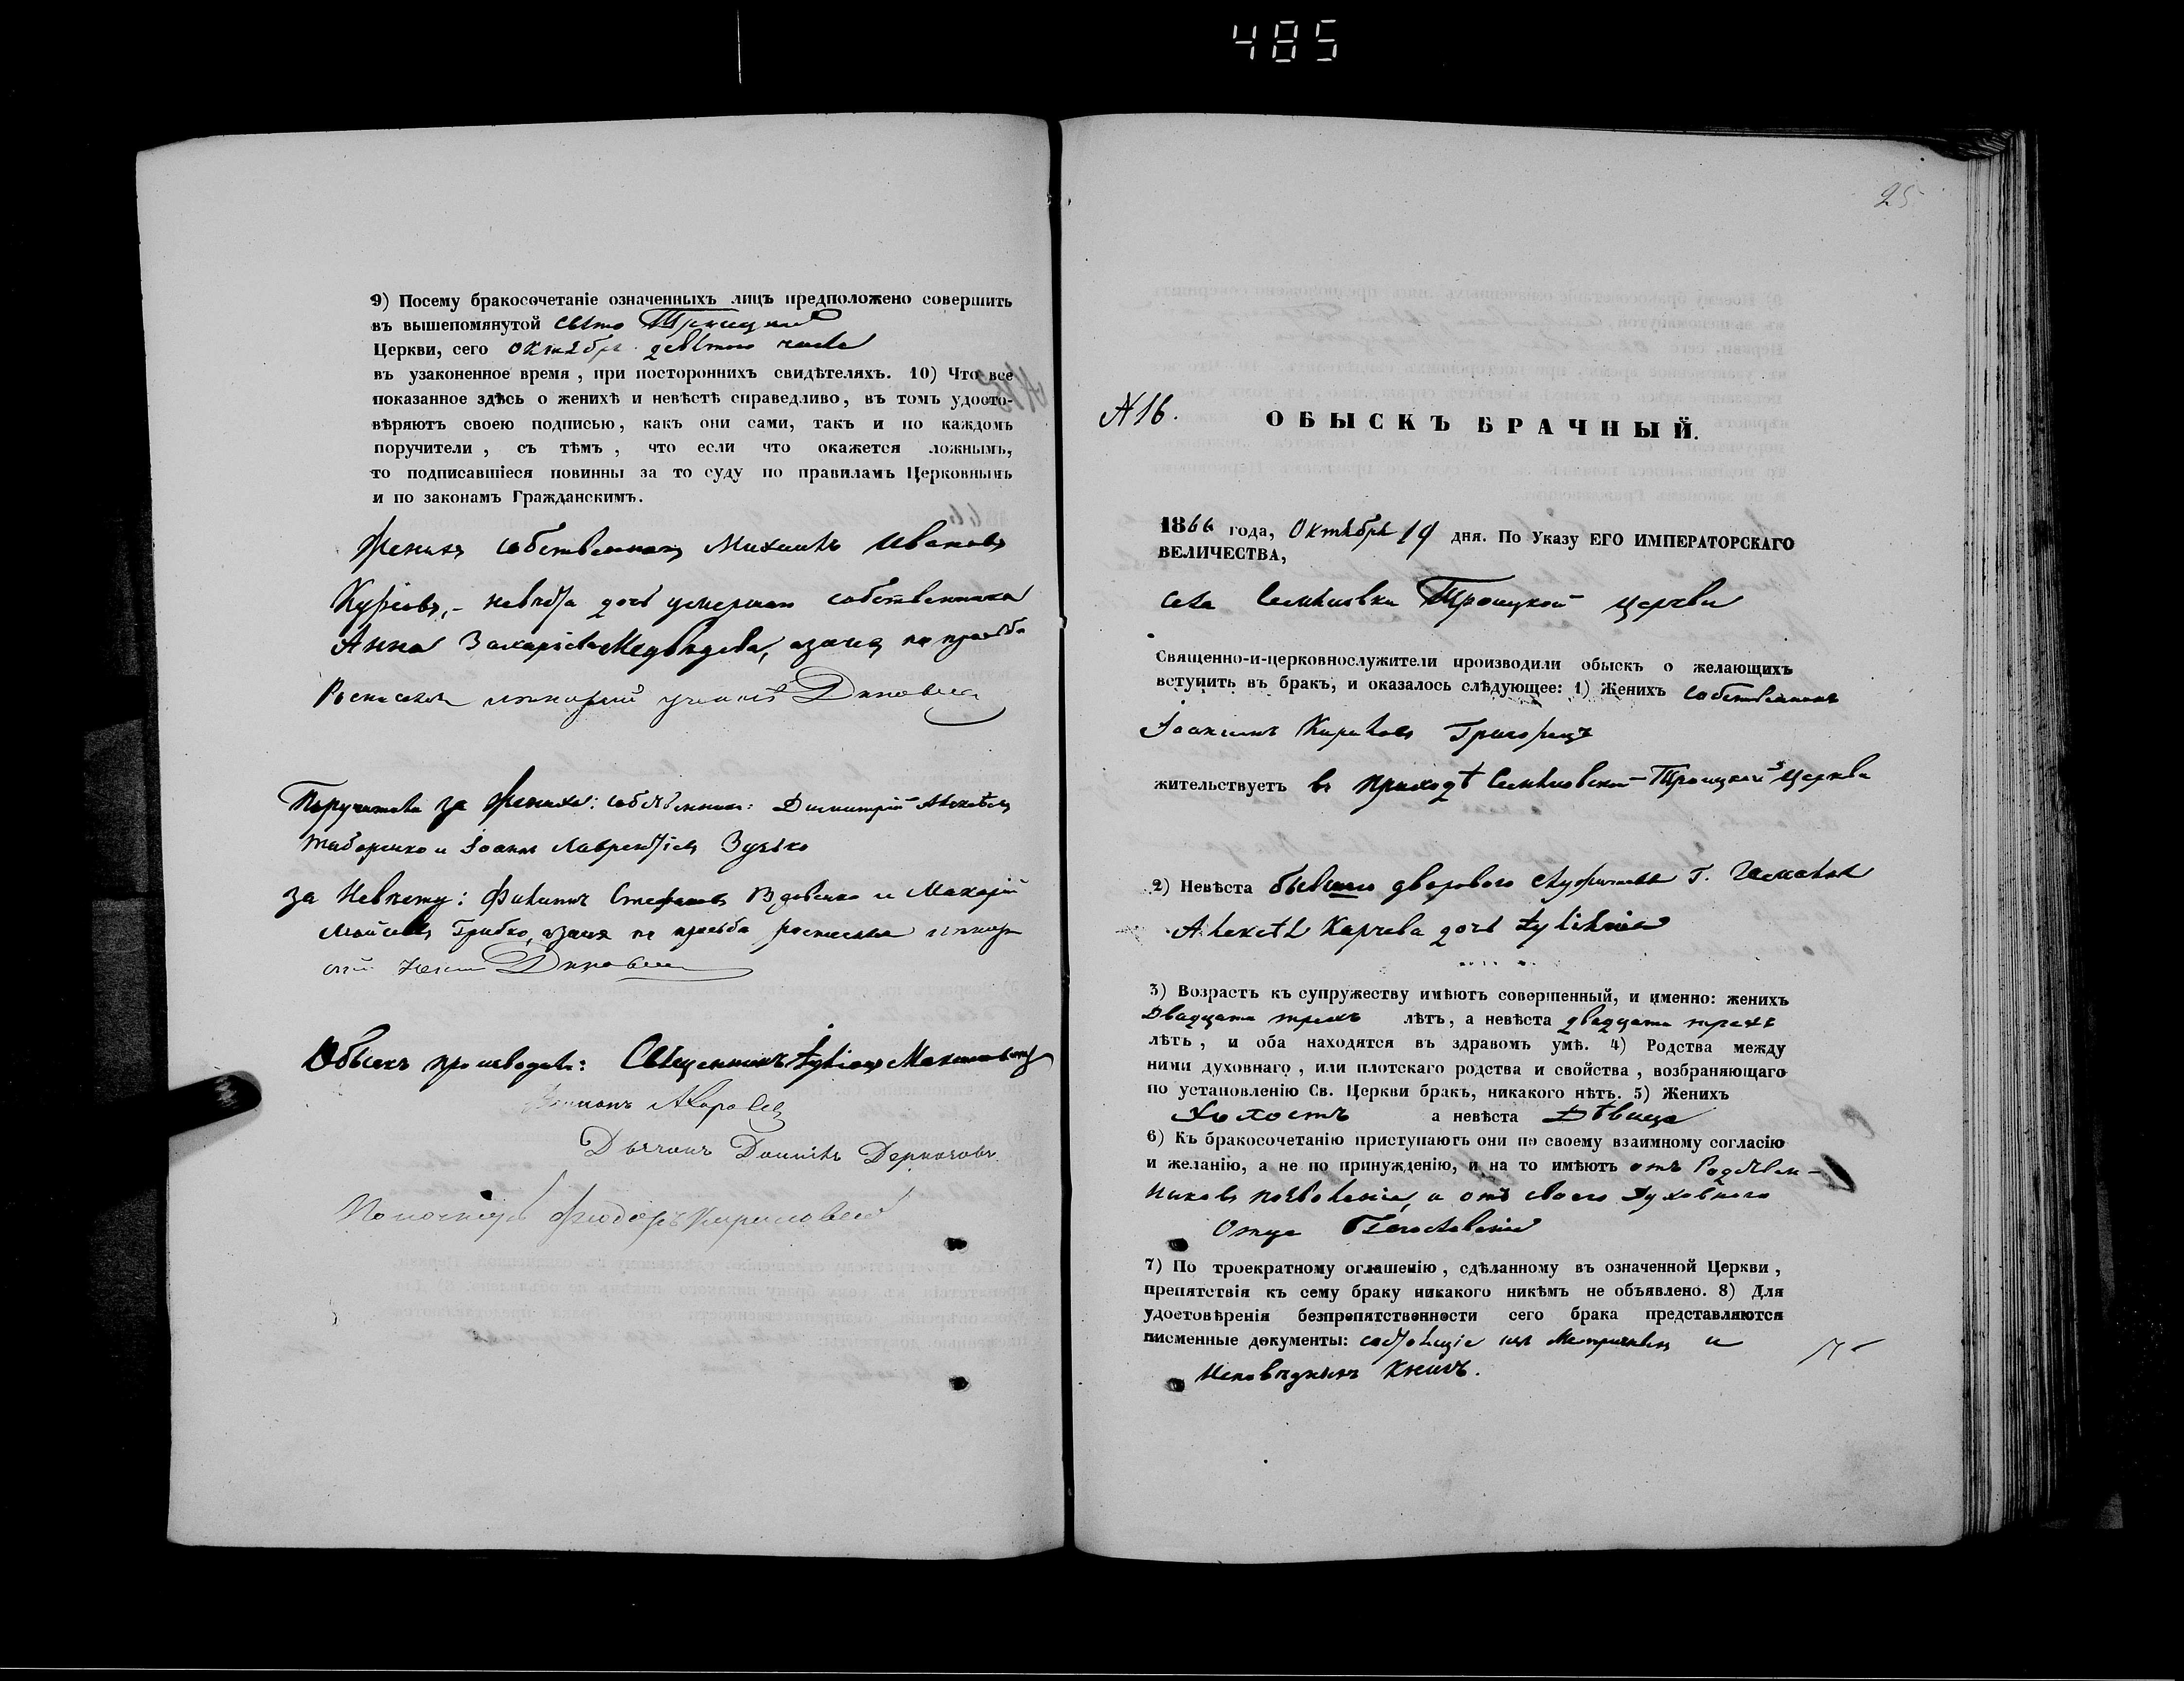 485
9) Посему бракосочетаніе означенныхъ лицъ предположено совершить
въ вышепомянутой Свято Троицкой
Церкви, сего октября девятого числа
въ узаконенное время , при постороннихъ свидѣтеляхъ. 10) Что все
показанное здѣсь о женихѣ и невѣстѣ справедливо, въ томъ удосто-
вѣряютъ своею подписью, какъ они сами, такъ и по каждомъ
поручители , съ тѣмъ , что если что окажется ложнымъ,
то подписавшіеся повинны за то суду по правиламъ Церковнымъ
и по законамъ Гражданскимъ.
Женихъ собственникъ Михаилъ Ивановъ
невѣста дочь умершаго собственника
Анна Захаріева Медвѣдева, а за нихъ по прозьбѣ
Поручители за жениха: собственники: Димитрій Алексѣевъ
и Іоаннъ Лаврентіевъ Зузько
за Невѣсту: Филиппъ Стефановъ Вдовенко и Макарій
Моисеевъ Грибко, а за нихъ по прозьбѣ росписался
Обыскъ производили: Священникъ
Дьячокъ Даніилъ
Пономарь Феодоръ
25
№ 16.
ОБЫСКЪ БРАЧНЫЙ.
1866 года, Октября 19 дня. По Указу ЕГО ИМПЕРАТОРСКАГО
ВЕЛИЧЕСТВА,
села Семяновки Троицкой церкви
Священно-и-церковнослужители производили обыскъ о желающихъ
вступить въ бракъ, и оказалось слѣдующее: 1) Женихъ собственникъ
Іоакимъ Кириловъ Григорецъ
жительствуетъ въ приходѣ Семяновской Троицкой Церкви
2) Невѣста бывшаго дворового служителя Г.
Алексѣя Карчева дочь
3) Возрастъ къ супружеству имѣютъ совершенный, и именно: женихъ
Двадцати трехъ лѣтъ, а невѣста двадцати трехъ
лѣтъ , и оба находятся въ здравомъ умѣ. 4) Родства между
ними духовнаго , или плотскаго родства и свойства , возбраняющаго
по установленію Св. Церкви бракъ, никакого нѣтъ. 5) Женихъ
Холостъ а невѣста Дѣвица
6) Къ бракосочетанію приступаютъ они по своему взаимному согласію
и желанію, а не по принужденію, и на то имѣютъ отъ Родствен-
никовъ позволеніе, и отъ своего духовного
Отца Благословеніе
7) По троекратному оглашенію , сдѣланному въ означенной Церкви ,
препятствія къ сему браку никакого никѣмъ не объявлено. 8) Для
удостовѣренія безпрепятственности сего брака представляются
писменные документы: состоящіе изъ Метричныхъ и
Исповѣдныхъ Книгъ.